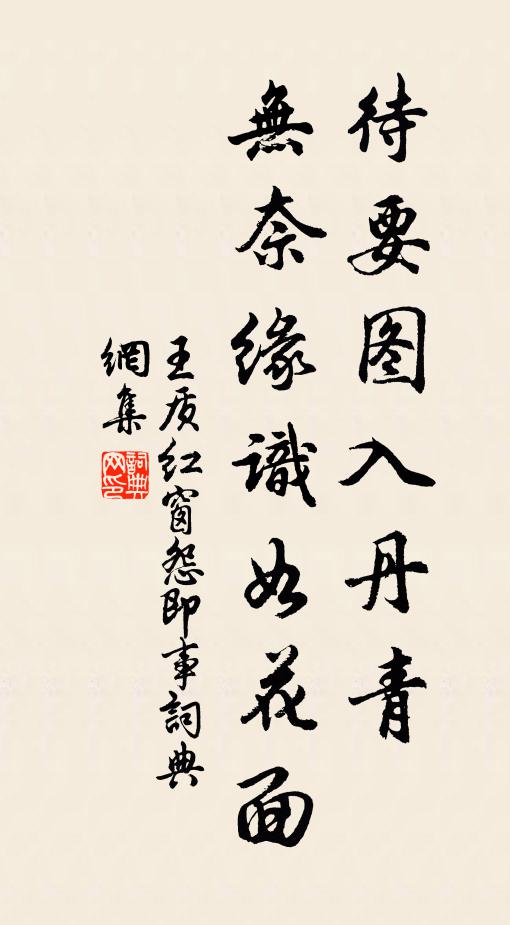 待要图入丹青
無奈緣識如花面
王质红窗怨即事詞典
網集
詞典网印